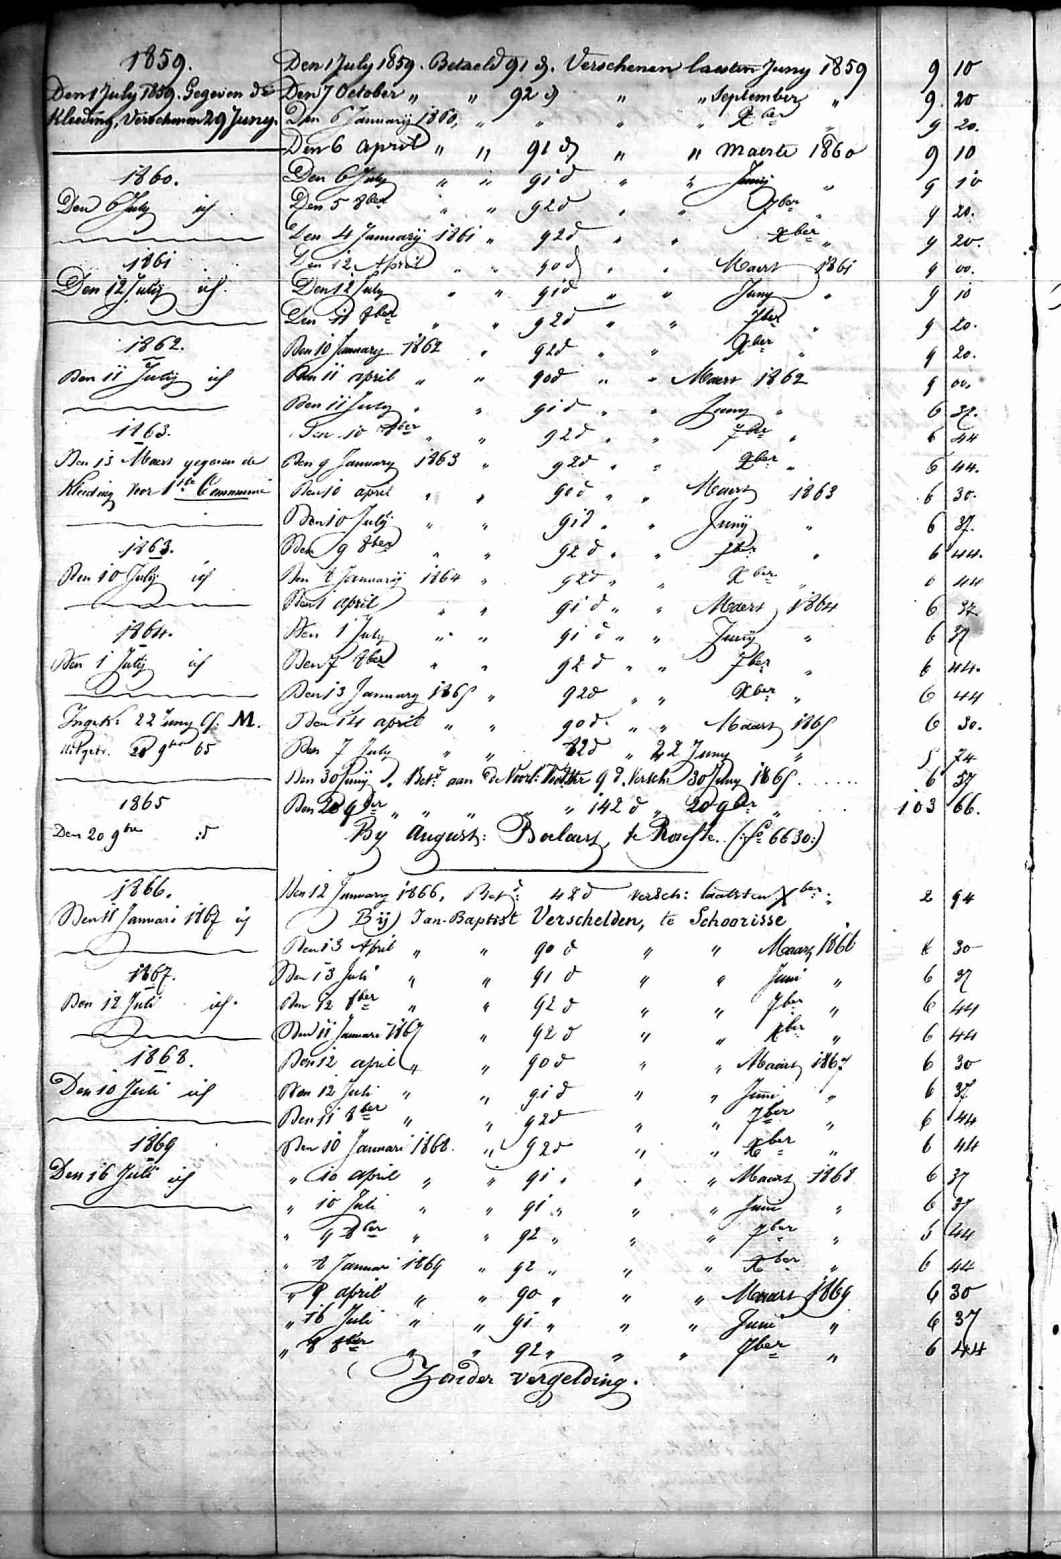 1859.
Den 1 July 1859. Gegeven de
Kleeding, Verschenen 29 Juny.
1860.
Den 6 July id
1861
Den 12 July id.
1862.
Den 11 July id
1863.
Den 13 Maert gegeven de
Kleeding voor 1ste Communie
1863.
Den 10 July id
1864.
Den 1 July id
22 Juny 65. M.
20 9ber 65
1865
Den 20 9bre id
1866.
Den 11 Januari 1867 id
1867.
Den 12 Juli id.
1868.
Den 10 Juli id
1869
Den 16 Juli id
Den 1 July 1859. Betaeld 91 d. Verschenen laesten Juny 1859 9 10
Den 7 October " " 92 d " " September " 9. 20
Den 6 January 1860, " " " " Xber " 9 20.
Den 6 april " " 91 d " " Maerte 1860 9 10
Den 6 July " " 91 d " " Juny " 9 10
Den 5 8ber " " 92 d " " 7ber " 9 20.
Den 4 January 1861 " 92 d " " Xber " 9 20.
Den 12 April " " 90 d " " Maert 1861 9 00.
Den 12 July " " 91 d " " Juny " 9 10
Den 11 8ber " " 92 d " " 7ber " 9 20.
Den 10 January 1862 " 92 d " " Xber " 9 20.
Den 11 april " " 90 d " " Maert 1862 9 00.
Den 11 July " " 91 d " " Juny " 6 37.
Den 10 8ber " " 92 d " " 7ber " 6 44
Den 9 January 1863 " 92 d " " Xber " 6 44.
Den 10 april " " 90 d " " Maert 1863 6 30.
Den 10 July " " 91 d " " Juny " 6 37.
Den 9 8ber " " 92 d " " 7ber " 6 44.
Den 8 January 1864 " 92 d " " Xber " 6 44
Den 1 april " " 91 d " " Maert 1864 6 37
Den 1 July " " 91 d " " Juny " 6 37
Den 7 8ber " " 92 d " " 7ber " 6 44.
Den 13 January 1865 " 92 d " " Xber " 6 44
Den 14 april " " 90 d. " " Maart 1865 6 30.
Den 7 July " " 82 d " 22 Juny " 5 74
Den 30 Juny . Bet. aan de 9 d. Versch 30 Juny 1865 . . . . . . 6 57
Den 20 9ber " " " " 142 d " 20 9ber " . . . 103 66.
By August: Boelaert, te Ronsse. (: fo 6630:)
Den 12 January 1866, Betd 42 d versch: laatsten Xber. " 2 94
Bij Jan-Baptist Verschelden, te Schoorisse
Den 13 April " " 90 d " " Maart 1866 6 30
Den 13 Juli " " 91 d " " Juni " 6 37
Den 12 8ber " " 92 d " " 7ber " 6 44
Den 11 Januari 1867 " 92 d " " Xber " 6 44
Den 12 april " " 90 d " " Maart 1867 6 30
Den 12 Juli " " 91 d " " Juni " 6 37
Den 11 8ber " " 92 d " " 7ber " 6 44
Den 10 Januari 1868. " 92 d " " Xber " 6 44
" 10 april " " 91 " " " Maart 1868 6 37
" 10 Juli " " 91 " " " Juni " 6 37
" 9 8ber " " 92 " " " 7ber " 6 44
" 8 Januari 1869 " 92 " " " Xber " 6 44
" 9 april " " 90 " " " Maart 1869 6 30
" 16 Juli " " 91 " " " Juni " 6 37
" 8 8ber " " 92 " " " 7ber " 6 44
Zonder vergelding.